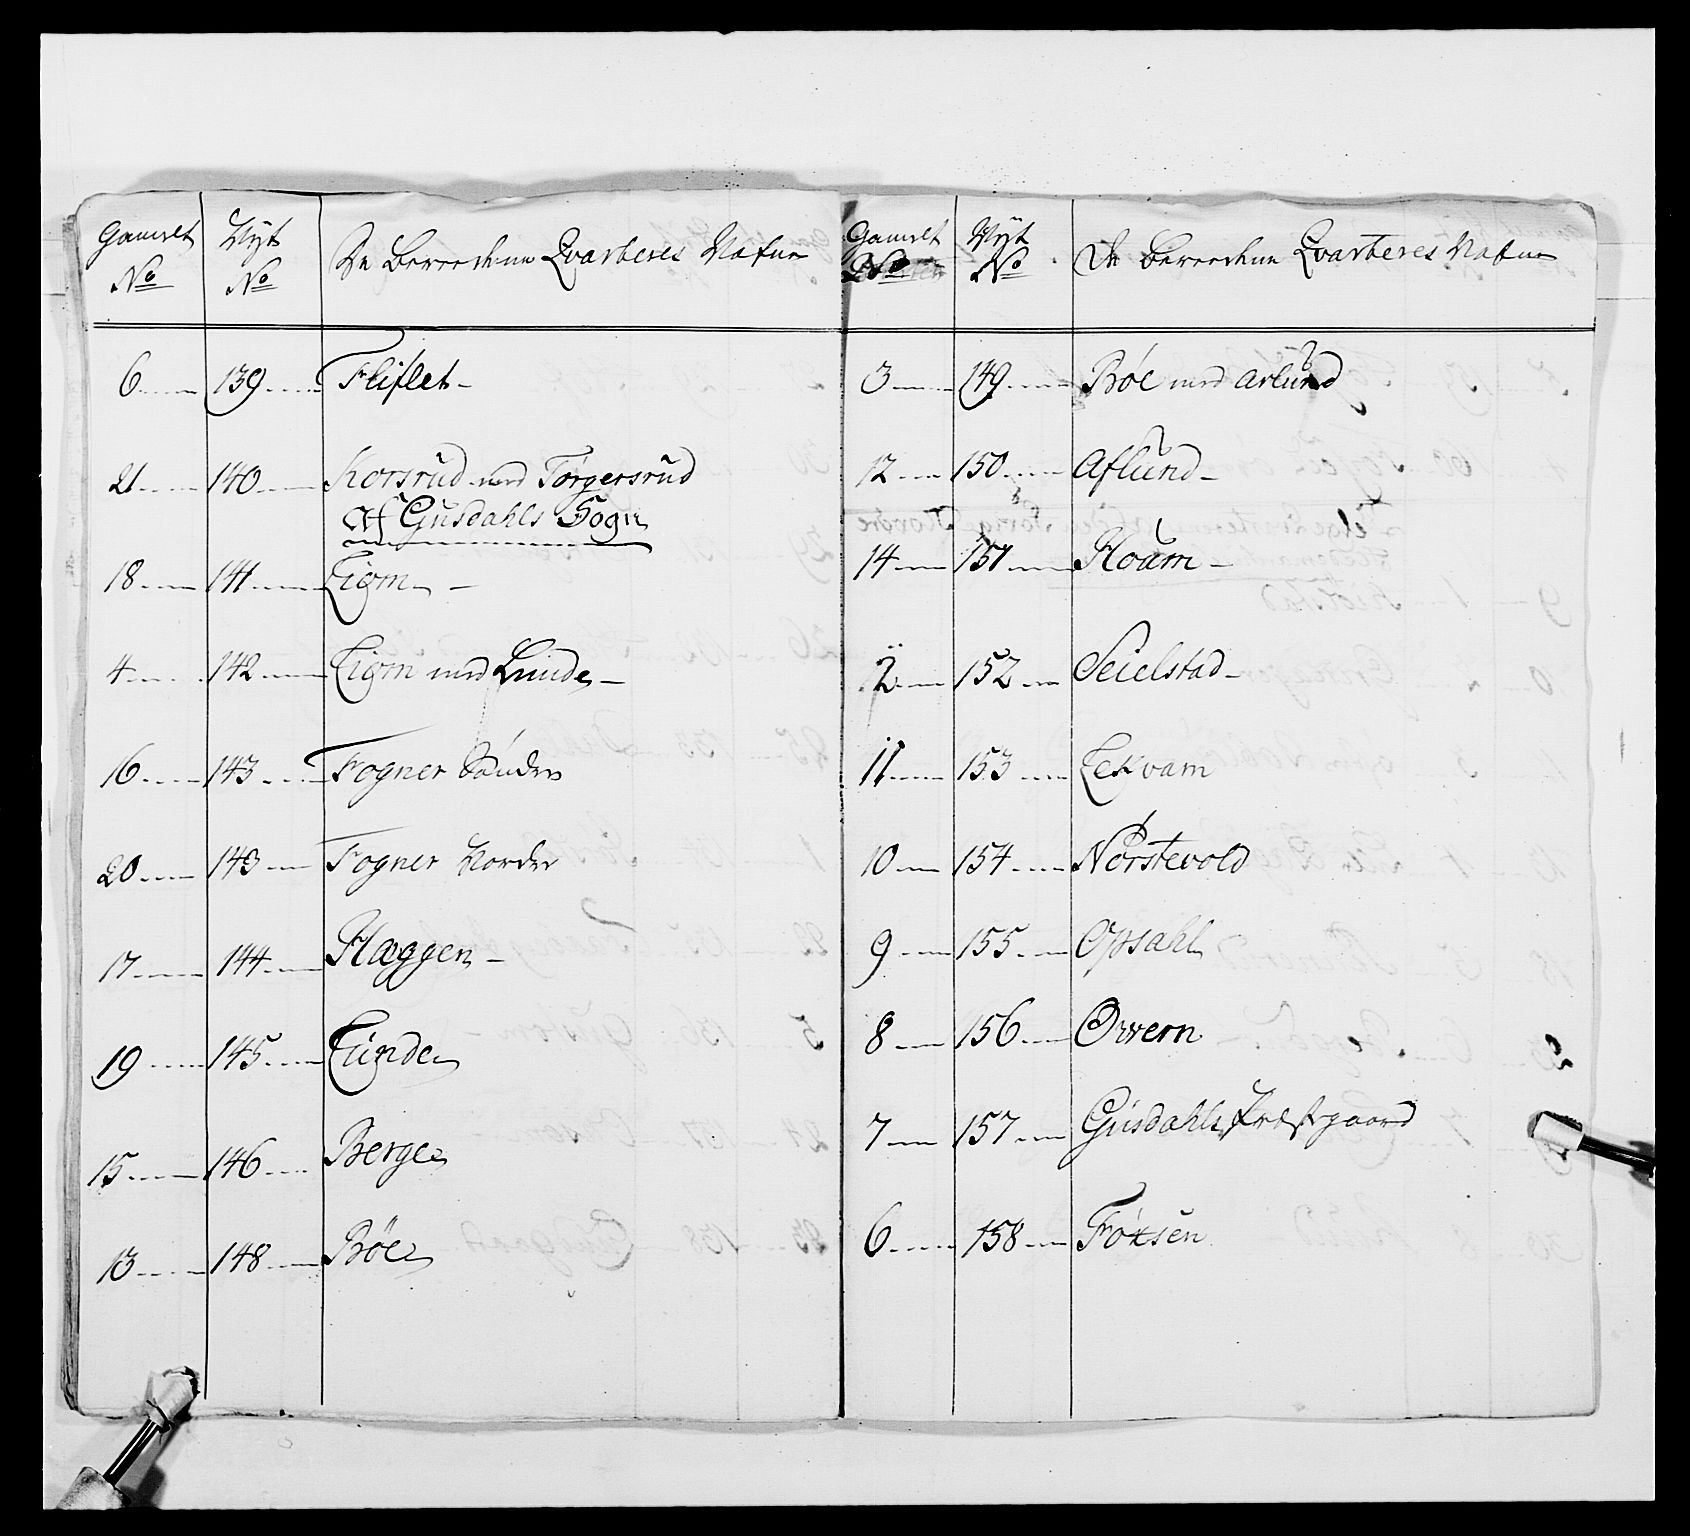 Gamelt Nyt De Bereedene Qvarteres Nafne
No No
6 139 Fliflet
21 140 Korsrud med Torgersrud
Af Gusdahls Sogn
18 141 Liøm
4 142 Liøm med Lunde
16 143 Fogner Søndre
20 143 Fogner Nordre
17 144 Flaggen
19 145 Lunde
15 146 Berge
13 148 Bøe
Gamelt Nyt De Bereedene Qvarteres Nafne
No No
3 149 Bøe med Aflund
12 150 Aflund
14 151 Houm
2 152 Seielstad
11 153 Lekvam
10 154 Norstevold
9 155 Opsahl
8 156 Ovren
7 157 Gusdahls Præstgaard
6 158 Foxsen